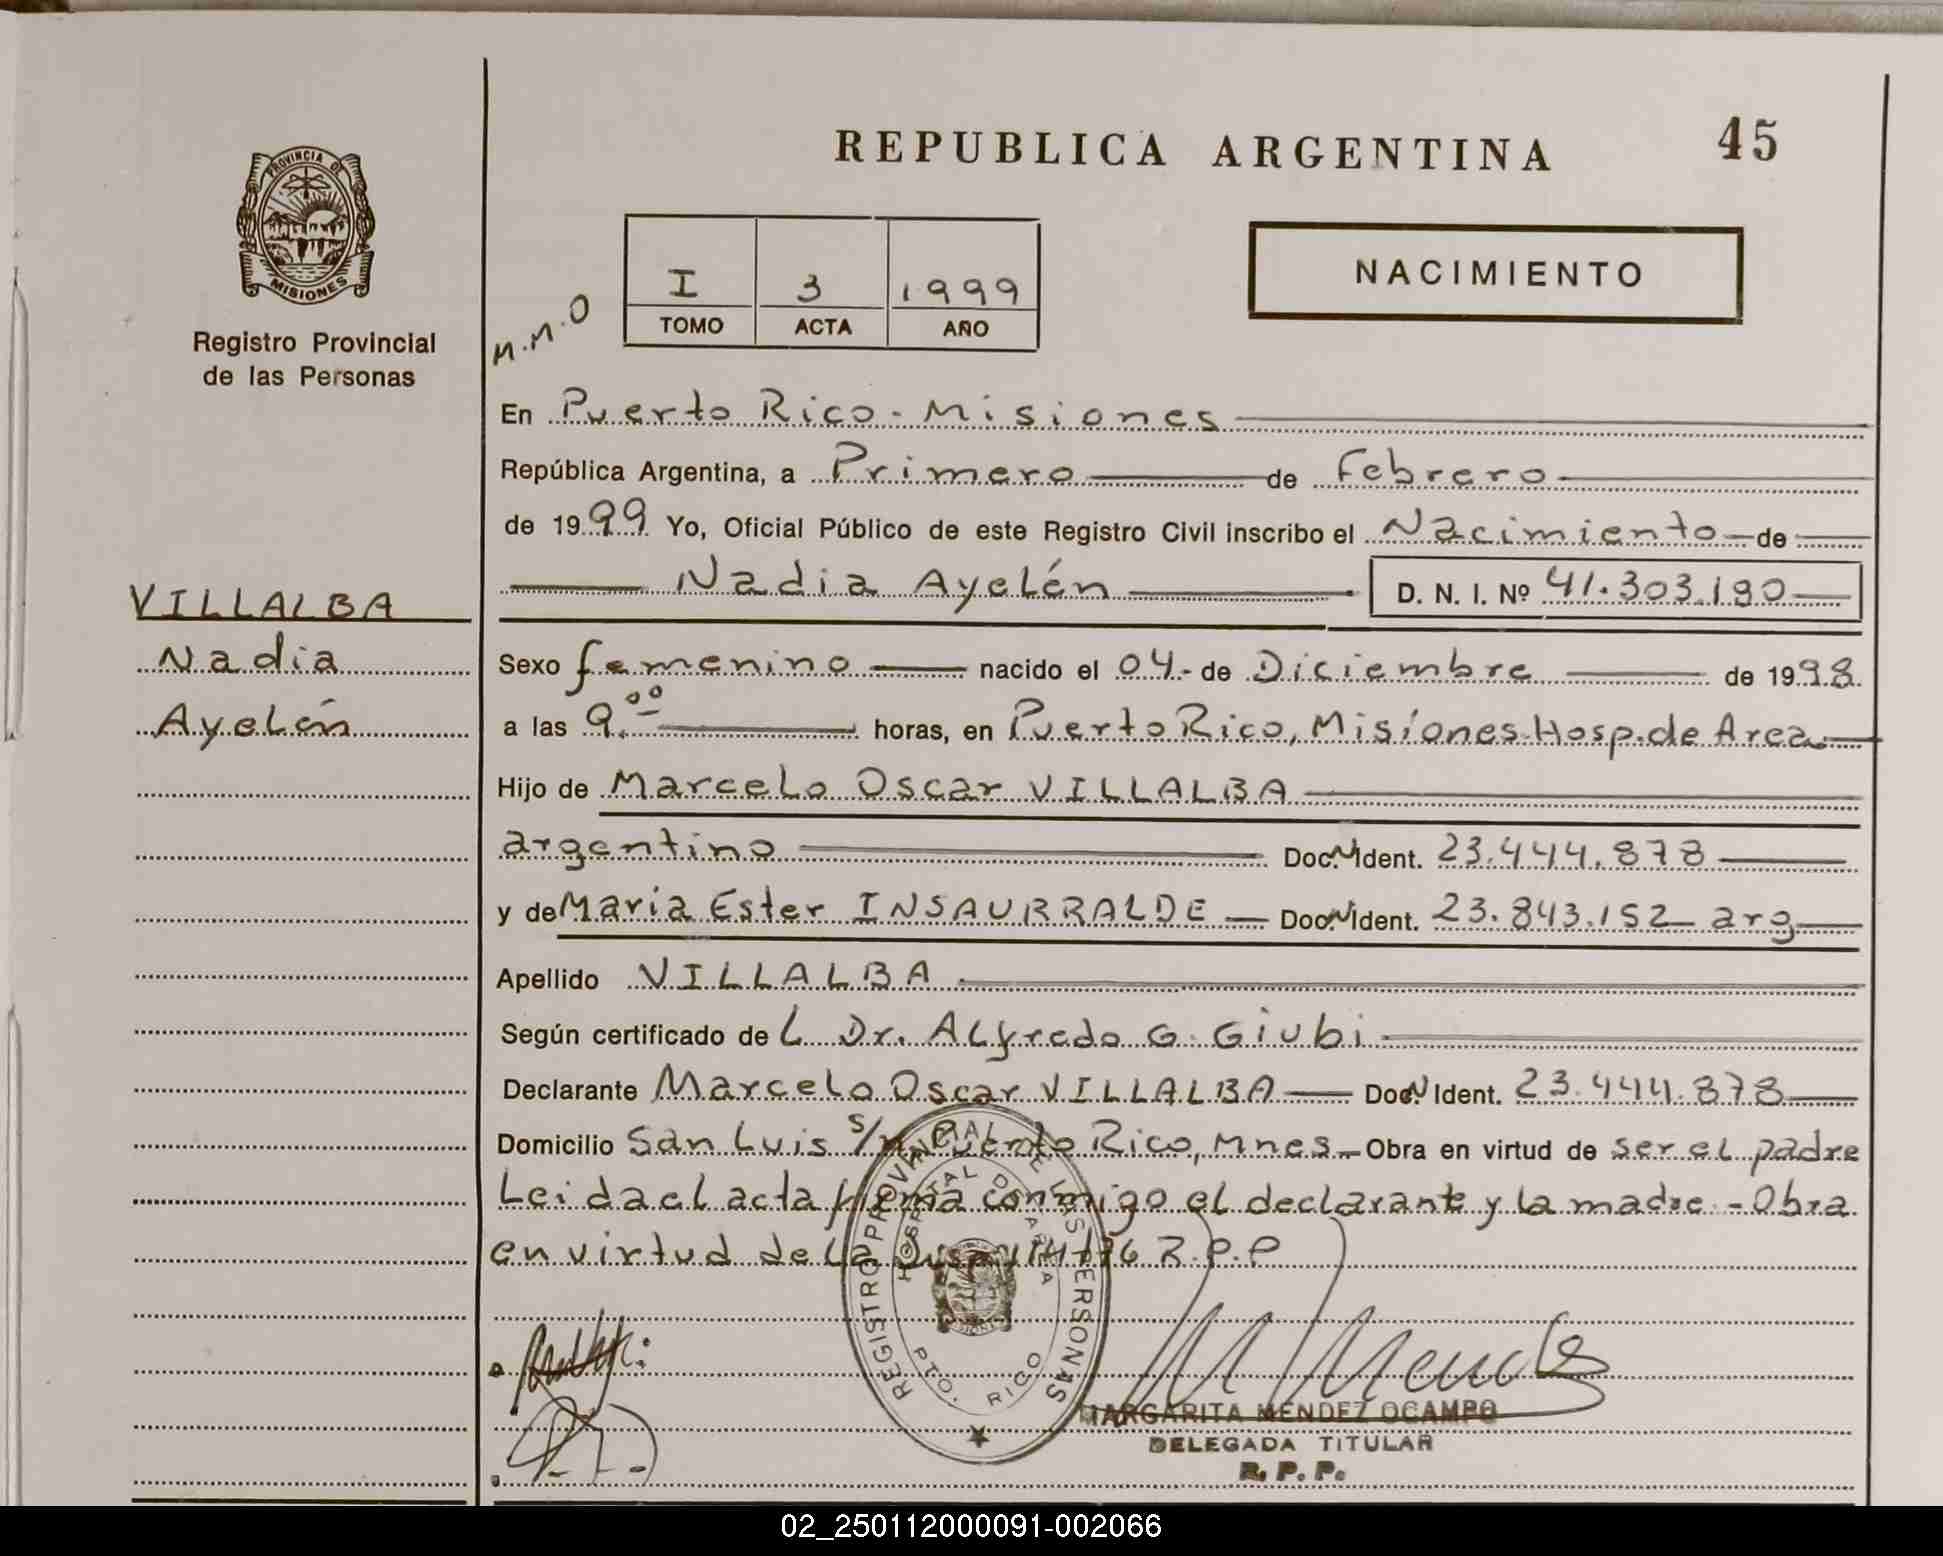 REPUBLICA ARGENTINA
45
PROVINCIA DE
MISIONES
Registro Provincial
de las Personas
I 3 1999
TOMO ACTA AÑO
NACIMIENTO
M.M.O
En Puerto Rico - Misiones
República Argentina, a Primero de Febrero
de 1999 Yo, Oficial Público de este Registro Civil inscribo el Nacimiento de
Nadia Ayelén D. N. I. Nº 41.303.190
VILLALBA
Nadia
Ayelén
Sexo femenino nacido el 04 - de Diciembre de 1998
a las 9.00 horas, en Puerto Rico, Misiones - Hosp. de Area
Hijo de Marcelo Oscar VILLALBA
argentino Doc. N. Ident. 23.444.878
y de Maria Ester INSAURRALDE Doc. N. Ident. 23.843.152 - arg
Apellido VILLALBA
Según certificado de L Dr. Alfredo G. Giubi
Declarante Marcelo Oscar VILLALBA Doc. N Ident. 23.444.878
Domicilio San Luis s/n Puerto Rico, Mnes - Obra en virtud de ser el padre
Leida el acta firma conmigo el declarante y la madre - Obra
en virtud de la Disp. R.P.P
REGISTRO PROVINCIAL DE LAS PERSONAS
HOSPITAL DE AREA
PTO. RICO
M Mendez
MARGARITA MENDEZ OCAMPO
DELEGADA TITULAR
R. P. P.
02_250112000091-002066